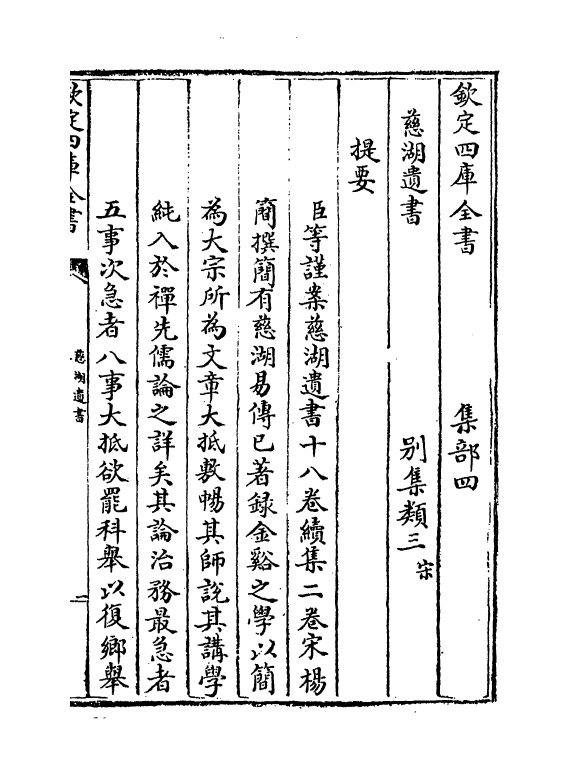 欽定四庫全書　集部四
慈湖遺書　別集類三宋
提要
臣等謹案慈湖遺書十八卷續集二卷宋楊
簡撰簡有慈湖易傳已著録金谿之學以簡
為大宗所為文章大抵敷暢其師說其講學
純入於禪先儒論之詳矣其論治務最急者
五事次急者八事大抵欲罷科舉以復鄉舉
欽定四庫全書
慈湖遺書
一